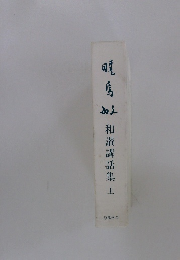 暁烏敏
和讃講話集 上